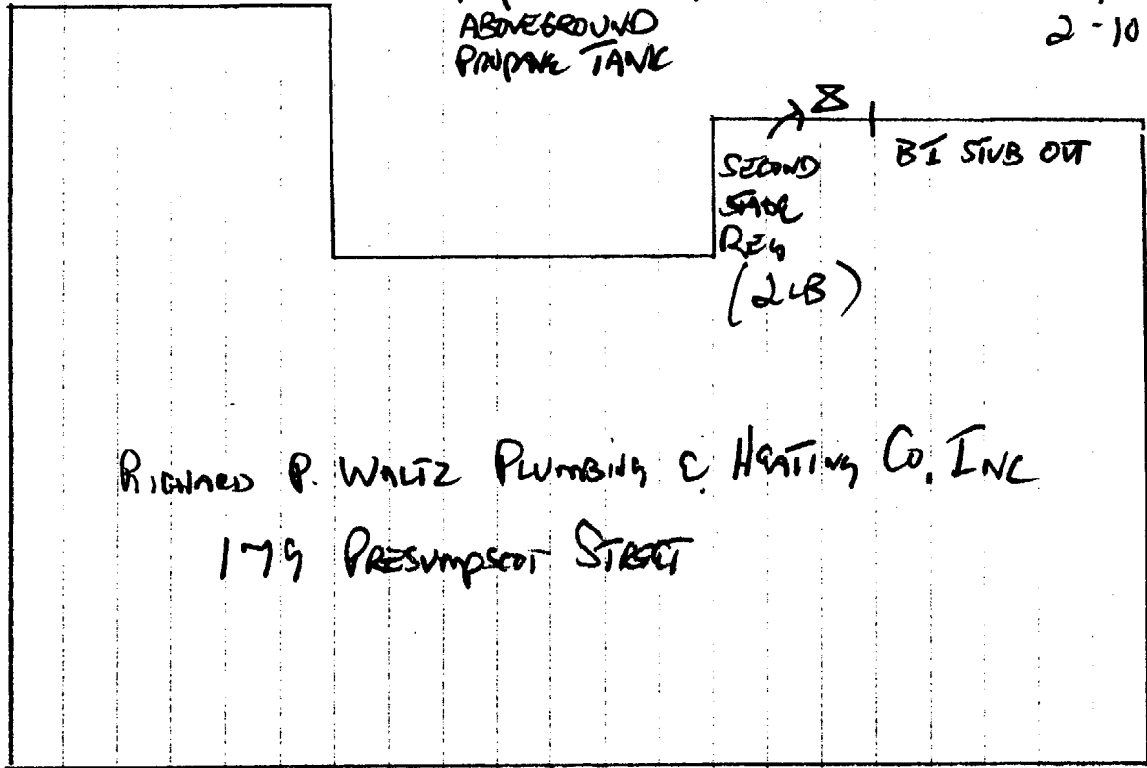 ABOVEGROUND
PROPANE TANK
2-10
SECOND
STAGE
REG
(2LB)
BI STUB OUT
RICHARD P. WALTZ PLUMBING & HEATING CO. INC
179 PRESUMPSCOT STREET